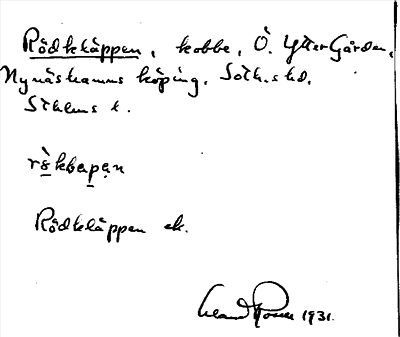 Rödkläppen, kobbe, Ö. Ytter Gården,
Nynäshamns köping, Soth. skd,
Sthlms l.
rö̀kḷapạn
Rödkläppen ek.
1931.